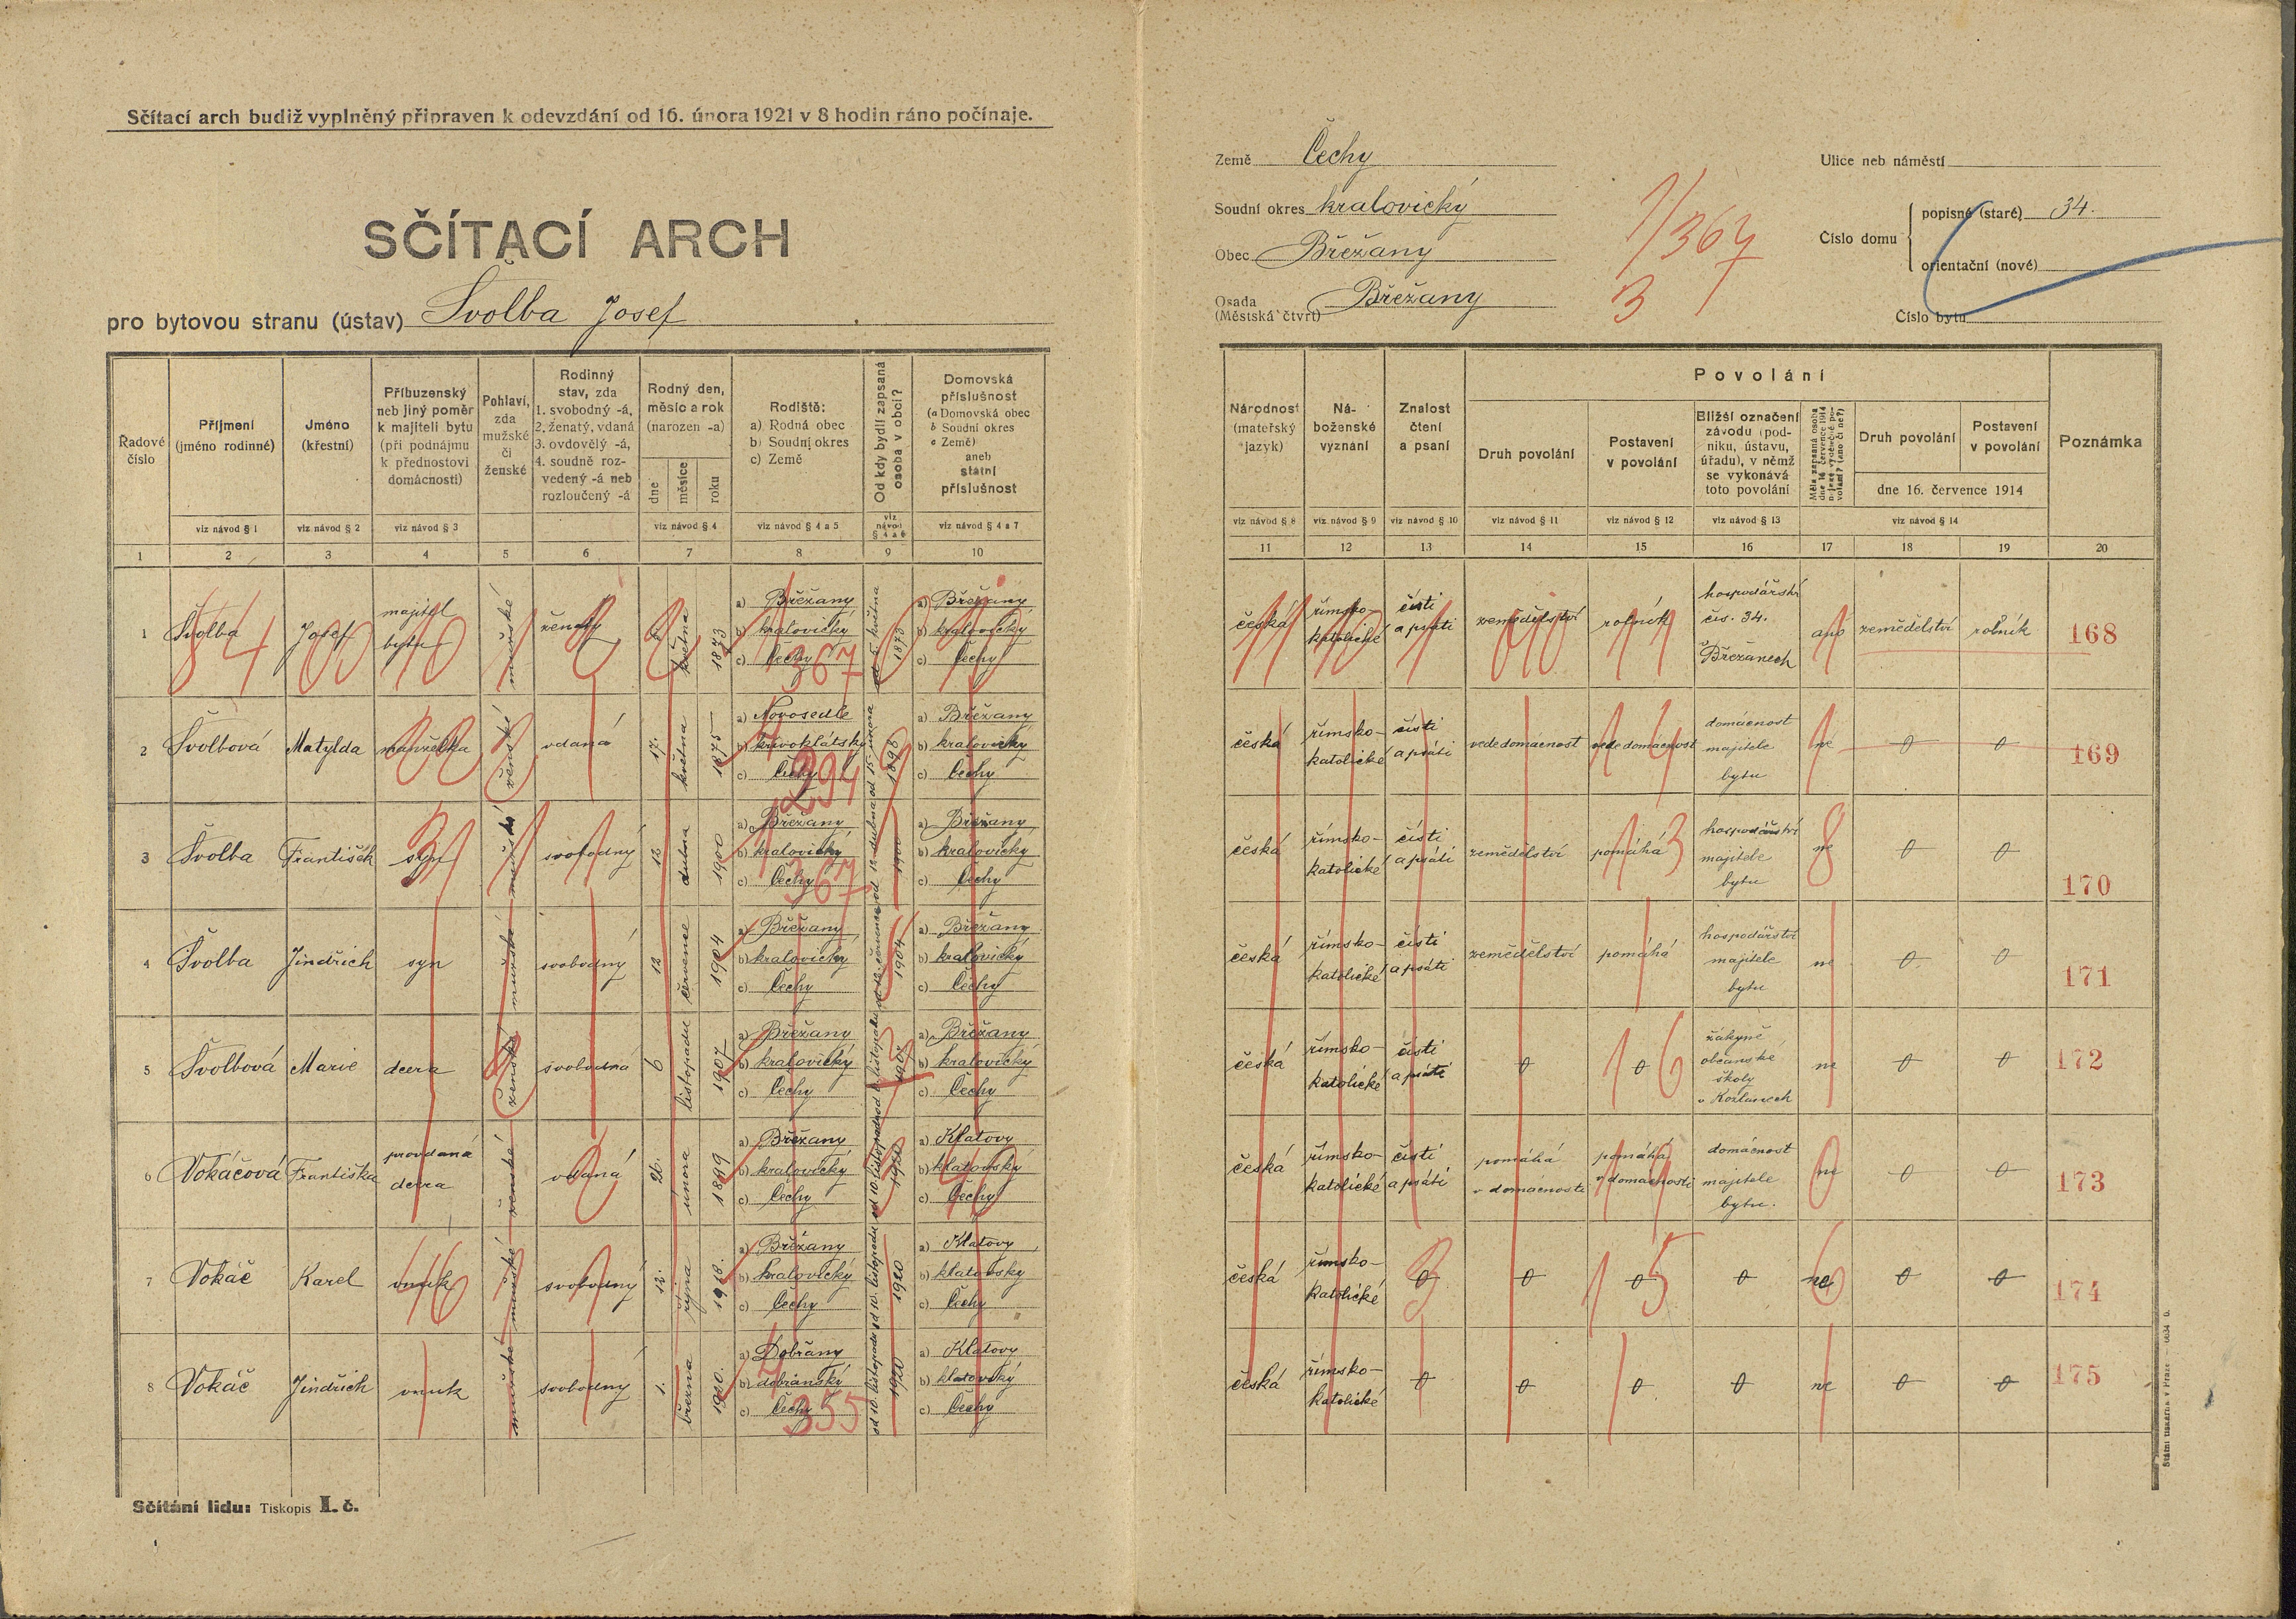 Sčítací arch budiž vyplněný připraven k odevzdání od 16. února 1921 v 8 hodin ráno počínaje.
SČÍTACÍ ARCH
pro bytovou stranu (ústav) Švolba Josef
Řadové číslo
Příjmení (jméno rodinné)
Jméno (křestní)
Příbuzenský neb jiný poměr k majiteli bytu (při podnájmu k přednostovi domácnosti)
Pohlaví, zda mužské či ženské
Rodinný stav, zda 1. svobodný -á, 2. ženatý, vdaná 3. ovdovělý -á, 4. soudně rozvedený -á neb rozloučený -á
Rodný den, měsíc a rok (narozen -a)
dne měsíce roku
Rodiště: a) Rodná obec b) Soudní okres c) Země
Od kdy bydlí zapsaná osoba v obci?
Domovská příslušnost (a Domovská obec b Soudní okres c Země) aneb státní příslušnost
viz návod § 1 viz návod § 2 viz návod § 3 viz návod § 4 viz návod § 4 a 5 viz návod § 4 a 6 viz návod § 4 a 7
1 2 3 4 5 6 7 8 9 10
1 Švolba Josef majitel bytu mužské ženatý 5 května 1873 a) Břežany b) kralovický c) Čechy od 5. května 1873 a) Břežany b) kralovický c) Čechy
2 Švolbová Matylda manželka ženské vdaná 17. května 1875 a) Novosedle b) křivoklátský c) Čechy od 15. února 1898 a) Břežany b) kralovický c) Čechy
3 Švolba František syn mužské svobodný 12 dubna 1900 a) Břežany b) kralovický c) Čechy od 12. dubna 1900 a) Břežany b) kralovický c) Čechy
4 Švolba Jindřich syn mužské svobodný 12 července 1904 a) Břežany b) kralovický c) Čechy od 12. července 1904 a) Břežany b) kralovický c) Čechy
5 Švolbová Marie dcera ženské svobodná 6 listopadu 1907 a) Břežany b) kralovický c) Čechy od 6. listopadu 1907 a) Břežany b) kralovický c) Čechy
6 Vokáčová Františka provdaná dcera ženské vdaná 26. února 1899 a) Břežany b) kralovický c) Čechy od 10. listopadu 1920 a) Klatovy b) klatovský c) Čechy
7 Vokáč Karel vnuk mužské svobodný 12. října 1918. a) Břežany b) kralovický c) Čechy od 10. listopadu 1920 a) Klatovy b) klatovský c) Čechy
8 Vokáč Jindřich vnuk mužské svobodný 1. března 1920. a) Dobřany b) dobřanský c) Čechy od 10. listopadu 1920 a) Klatovy b) klatovský c) Čechy
Sčítání lidu: Tiskopis I. č.
Země Čechy
Soudní okres kralovický
Obec Břežany
Osada (Městská čtvrť) Břežany
1/367
3
Ulice neb náměstí
Číslo domu
popisné (staré) 34.
orientační (nové)
Číslo bytu
Národnost (mateřský jazyk)
Náboženské vyznání
Znalost čtení a psaní
Povolání
Druh povolání
Postavení v povolání
Bližší označení závodu (podniku, ústavu, úřadu), v němž se vykonává toto povolání
Druh povolání
Postavení v povolání
dne 16. července 1914
Poznámka
viz návod § 8 viz návod § 9 viz návod § 10 viz návod § 11 viz návod § 12 viz návod § 13 viz návod § 14
11 12 13 14 15 16 17 18 19 20
česká římsko-katolické čísti a psáti zemědělství rolník hospodářství čís. 34. v Břežanech ano zemědělství rolník 168
česká římsko-katolické čísti a psáti vede domácnost vede domácnost domácnost majitele bytu ne 0 0 169
česká římsko-katolické čísti a psáti zemědělství pomáhá hospodářství majitele bytu ne 0 0 170
česká římsko-katolické čísti a psáti zemědělství pomáhá hospodářství majitele bytu ne 0 0 171
česká římsko-katolické čísti a psáti 0 0 žákyně občanské školy v Kožlanech ne 0 0 172
česká římsko-katolické čísti a psáti pomáhá v domácnosti pomáhá v domácnosti domácnost majitele bytu. ne 0 0 173
česká římsko-katolické 0 0 0 0 ne 0 0 174
česká římsko-katolické 0 0 0 0 ne 0 0 175